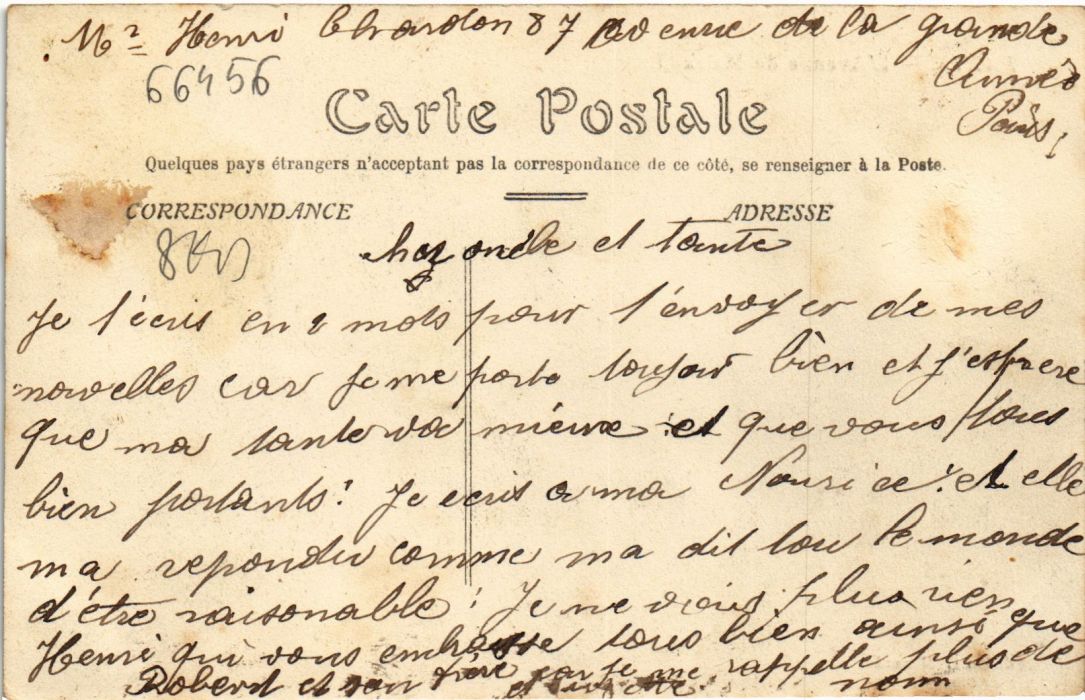 Mr Henri Chardon 87 avenue de la grande
Armée
Paris
66456
Carte Postale
Quelques pays étrangers n'acceptant pas la correspondance de ce côté, se renseigner à la Poste.
CORRESPONDANCE
ADRESSE
oncle et tante
Je t'écris en 2 mots pour t'envoyer de mes
nouvelles car je me porte toujour bien et j'esperre
que ma tante va mieux et que vous tous
bien portants! Je ecris a ma Nourice! et elle
ma repondu comme ma dit tou le monde
d'être raisonable! Je ne vois plus rien que
Henri qui vous embrasse tous bien ainsi
Robert et son père car je me rappelle plus de
nom